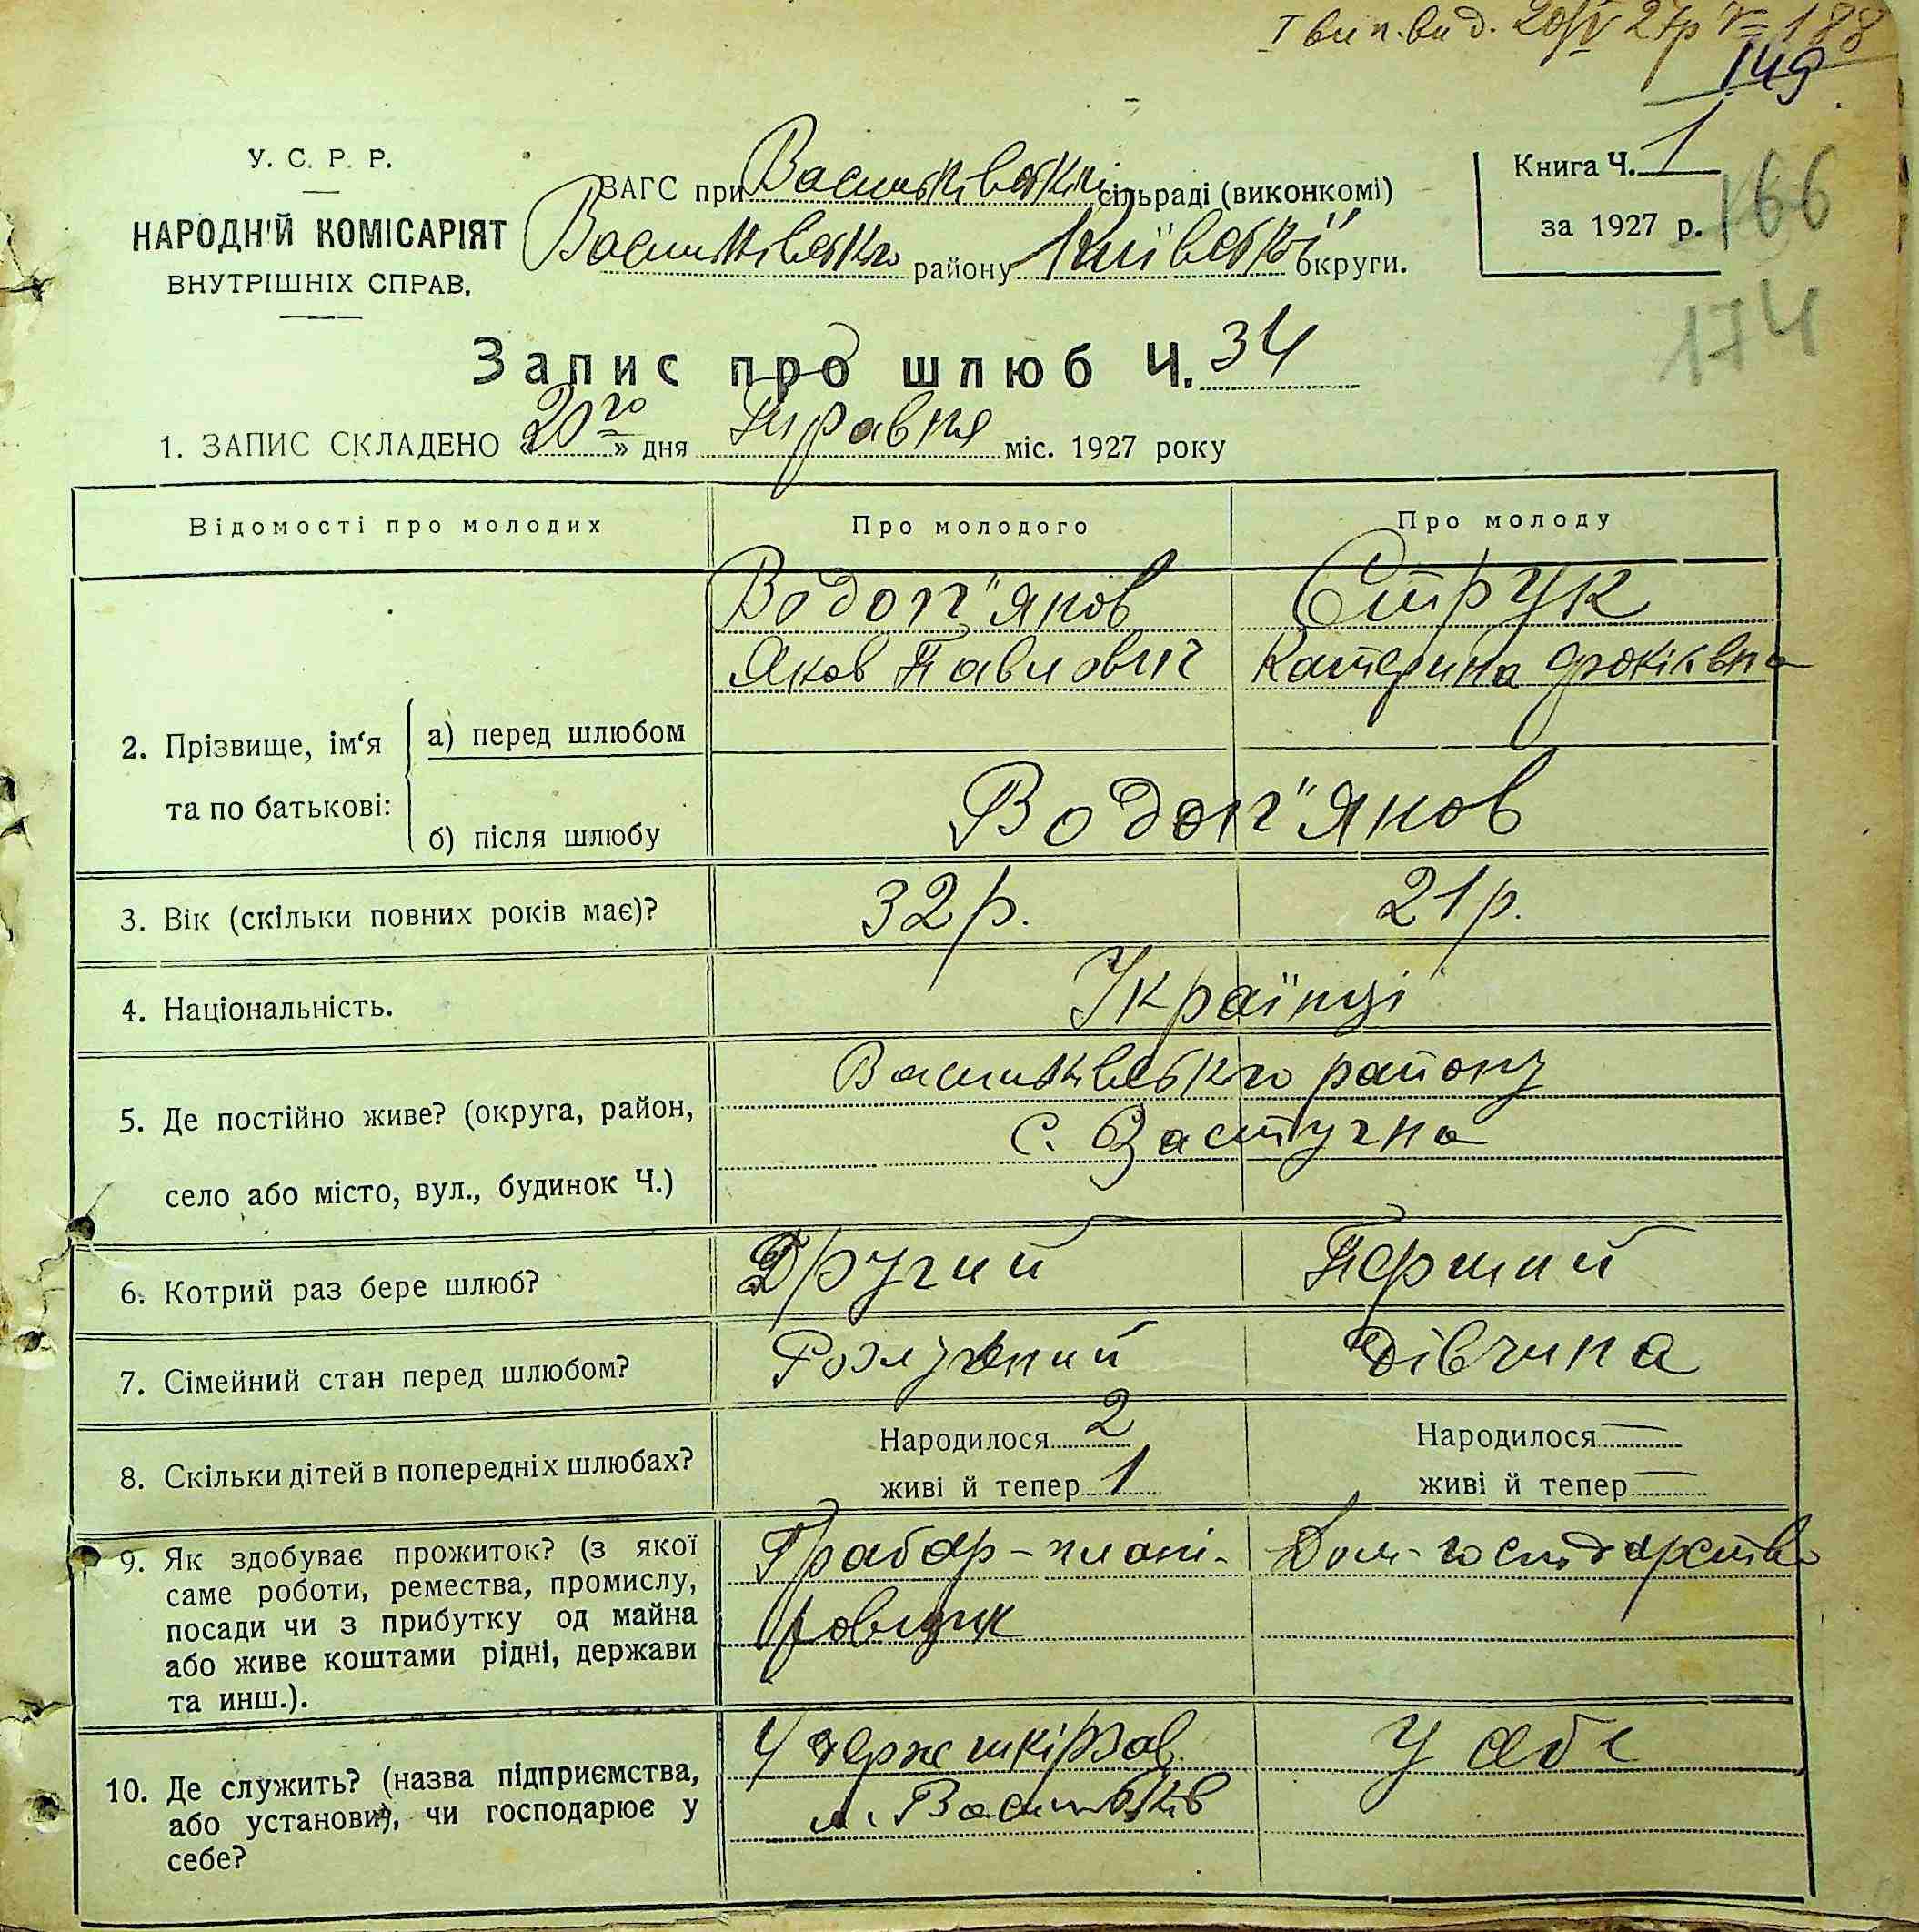 I вип. вид. 20/V 27р № 188
149
У. С. Р. Р.
НАРОДНІЙ КОМІСАРІЯТ
ВНУТРІШНІХ СПРАВ.
ЗАГС при Васильківськім сільраді (виконкомі)
Васильківського району Київської округи.
Книга Ч. 1
за 1927 р.
166
174
Запис про шлюб Ч. 34
1. ЗАПИС СКЛАДЕНО «20го» дня Травня міс. 1927 року
Відомості про молодих Про молодого Про молоду
Водоп"янов Струк
Яков Павлович Катерина
2. Прізвище, ім'я та по батькові:
а) перед шлюбом
б) після шлюбу Водоп"янов
3. Вік (скільки повних років має)? 32 р. 21 р.
4. Національність. Українці
5. Де постійно живе? (округа, район, Васильківського району
село або місто, вул., будинок Ч.) с. Застугна
6. Котрий раз бере шлюб? Другий Перший
7. Сімейний стан перед шлюбом? Розлучений Дівчина
8. Скільки дітей в попередніх шлюбах? Народилося 2 Народилося —
живі й тепер 1 живі й тепер —
9. Як здобуває прожиток? (з якої Грабар-плані- Дом-господарство
саме роботи, ремества, промислу,
посади чи з прибутку од майна ровщик
або живе коштами рідні, держави
та инш.).
У держшкірзав. У себе
10. Де служить? (назва підприємства,
або установи), чи господарює у м. Васильків
себе?